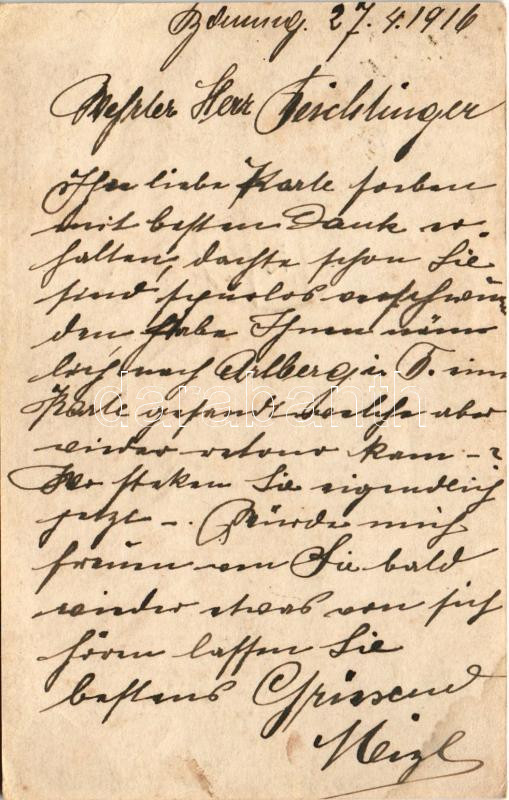 27.4.1916
Wehrter Herr Feichtinger
Ihre liebe Karte soeben
mit besten Dank er-
halten, dachte schon Sie
sind spurlos verschwun
den. Habe Ihnen näm
lich nach Arlberg in T. eine
Karte gesand welche aber
wieder retour kam -?
Wo steken Sie eigendlich
jetzt -. Würde mich
freuen wen Sie bald
wieder etwas von sich
hören lassen Sie
bestens Grüsend
darabanth